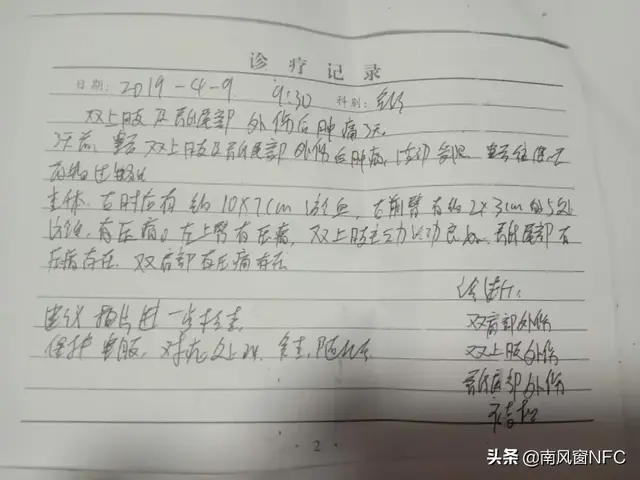 诊疗记录
日期: 2019-4-9 9:30 科别:
双上肢及骶尾部外伤后肿痛3天
3天前, 双上肢及骶尾部外伤后肿痛, 活动
查体: 右肘后有约10X7cm淤血, 右前臂有约2X3cm的5处
淤血, 有压痛。左上臂有压痛, 双上肢主动活动良好, 骶尾部有
压痛存在. 双肩部有压痛存在
诊断:
建议拍片进一步检查. 双肩部外伤
保护患肢, 对症处理. 复查, 随诊 双上肢外伤
骶尾部外伤
· 2 ·
头条 @南风窗NFC